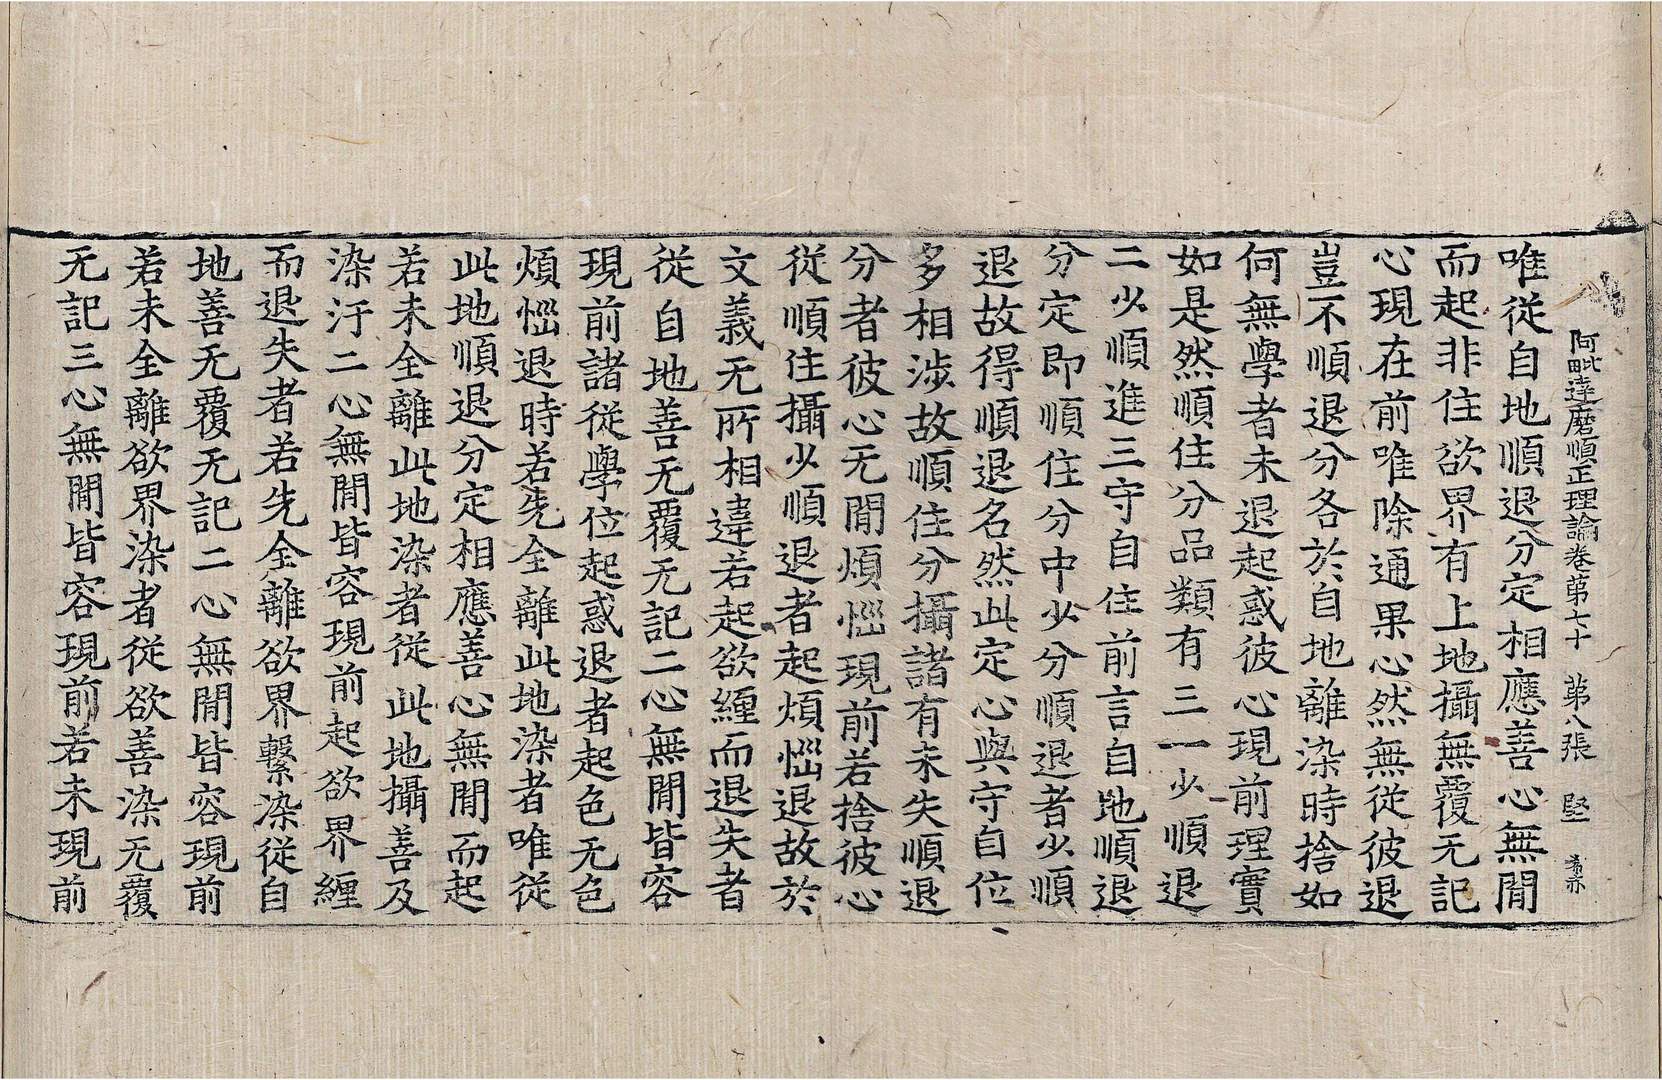 阿毗達磨順正理論卷第七十 第八張 堅
唯從自地順退分定相應善心無間
而起非住欲界有上地攝無覆无記
心現在前唯除通果心然無從彼退
豈不順退分各於自地離染時捨如
何無學者未退起惑彼心現前理實
如是然順住分品類有三一少順退
二少順進三守自住前言自地順退
分定即順住分中少分順退者少順
退故得順退名然此定心與守自位
多相涉故順住分攝諸有未失順退
分者彼心无間煩惱現前若捨彼心
從順住攝少順退者起煩惱退故於
文義无所相違若起欲纏而退失者
從自地善无覆无記二心無間皆容
現前諸從學位起惑退者起色无色
煩惱退時若先全離此地染者唯從
此地順退分定相應善心無間而起
若未全離此地染者從此地攝善及
染汙二心無間皆容現前起欲界纏
而退失者若先全離欲界繫染從自
地善无覆无記二心無間皆容現前
若未全離欲界染者從欲善染无覆
无記三心無間皆容現前若未現前